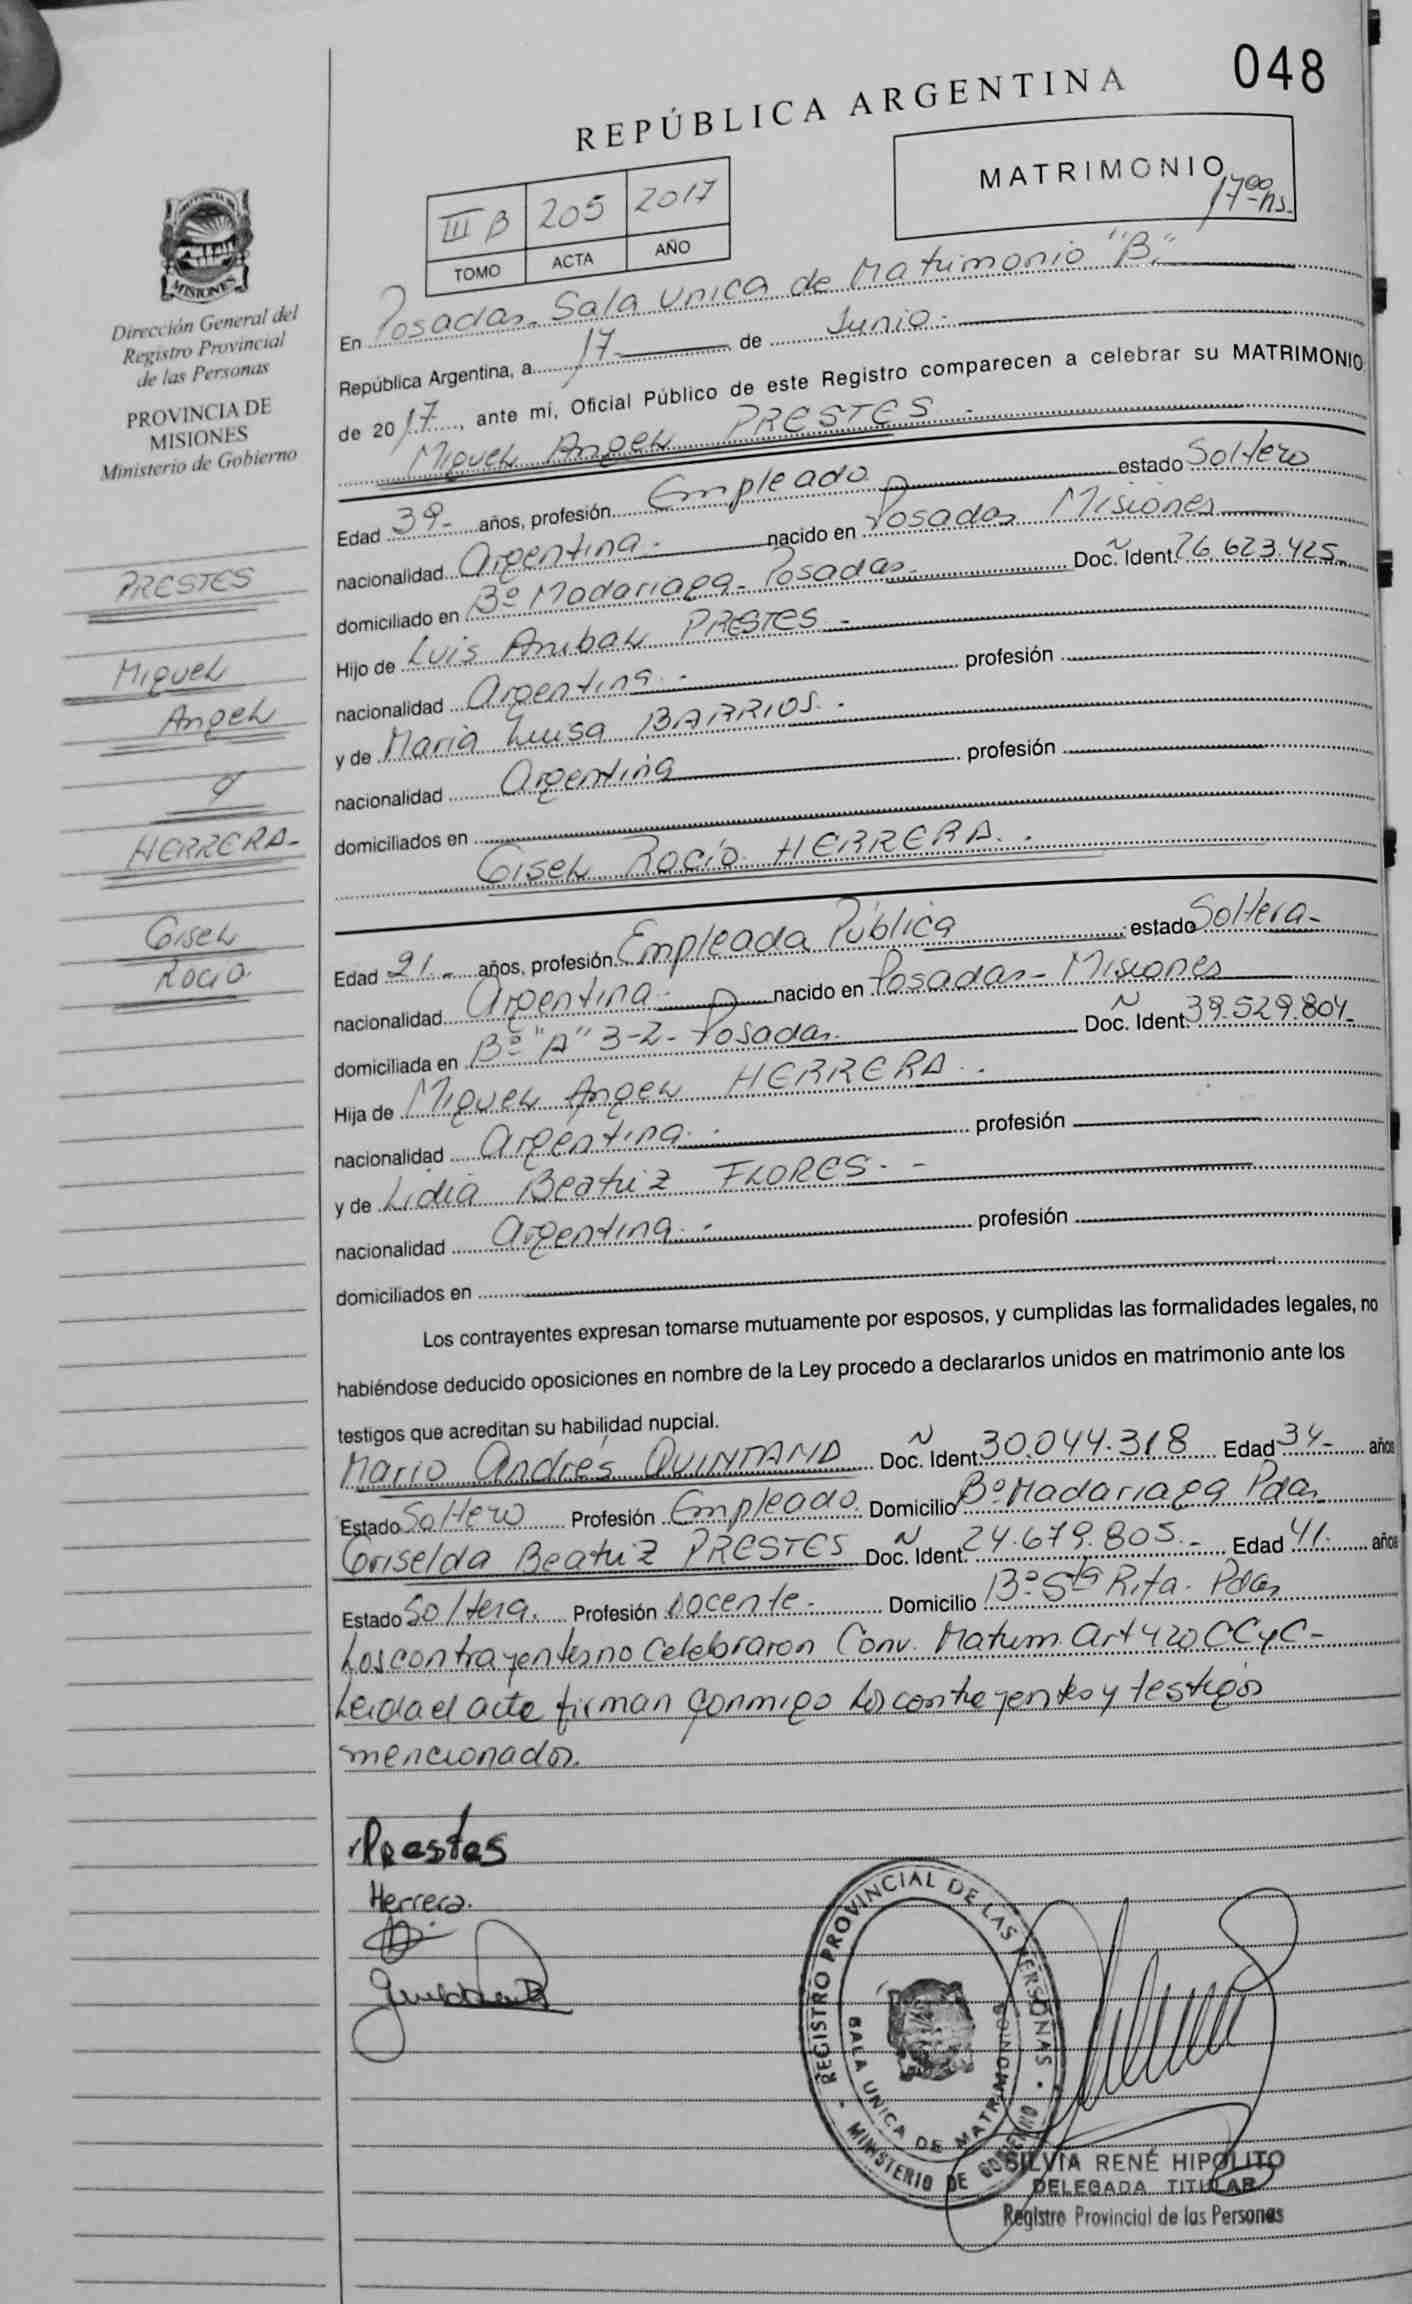 048
REPÚBLICA ARGENTINA
MATRIMONIO
17 00 hs.
III B 205 2017
TOMO ACTA AÑO
MISIONES
Dirección General del
Registro Provincial
de las Personas
PROVINCIA DE
MISIONES
Ministerio de Gobierno
PRESTES
Miguel
Angel
y
HERRERA-
Gisel
Rocío
En Posadas. Sala unica de Matrimonio "B".
República Argentina, a 17 de Junio.
de 2017, ante mí, Oficial Público de este Registro comparecen a celebrar su MATRIMONIO
Miguel Angel PRESTES -
Edad 39- años, profesión Empleado estado Soltero
nacionalidad Argentina. nacido en Posadas Misiones
domiciliado en Bº Madariaga- Posadas. Doc. Ident. 26.623.425-
Hijo de Luis Anibal PRESTES. -
nacionalidad Argentina. - profesión
y de Maria Luisa BARRIOS. -
nacionalidad Argentina profesión
domiciliados en
Gisel Rocío HERRERA. -
Edad 21.- años, profesión Empleada Pública estado Soltera-
nacionalidad Argentina. nacido en Posadas- Misiones
domiciliada en Bº "A" 3-2- Posadas. Doc. Ident. 39.529.804-
Hija de Miguel Angel HERRERA. -
nacionalidad Argentina. - profesión
y de Lidia Beatriz FLORES. -
nacionalidad Argentina. - profesión
domiciliados en
Los contrayentes expresan tomarse mutuamente por esposos, y cumplidas las formalidades legales, no
habiéndose deducido oposiciones en nombre de la Ley procedo a declararlos unidos en matrimonio ante los
testigos que acreditan su habilidad nupcial.
Mario Andrés QUINTANA Doc. Ident 30.044.318 Edad 34- años
Estado Soltero Profesión Empleado. Domicilio Bº Madariaga Pdas
Griselda Beatriz PRESTES Doc. Ident. 24.679.805.- Edad 41. años
Estado Soltera. Profesión Docente- Domicilio Bº Sta Rita. Pdas
Los contrayentes no celebraron Conv. Matrim. Art 420 CCyC-
Leida el acta firman conmigo los contrayentes y testigos
mencionados.
Prestes
Herrera.
REGISTRO PROVINCIAL DE LAS PERSONAS
SALA UNICA DE MATRIMONIO
MINISTERIO DE GOBIERNO
SILVIA RENÉ HIPOLITO
DELEGADA TITULAR
Registro Provincial de las Personas